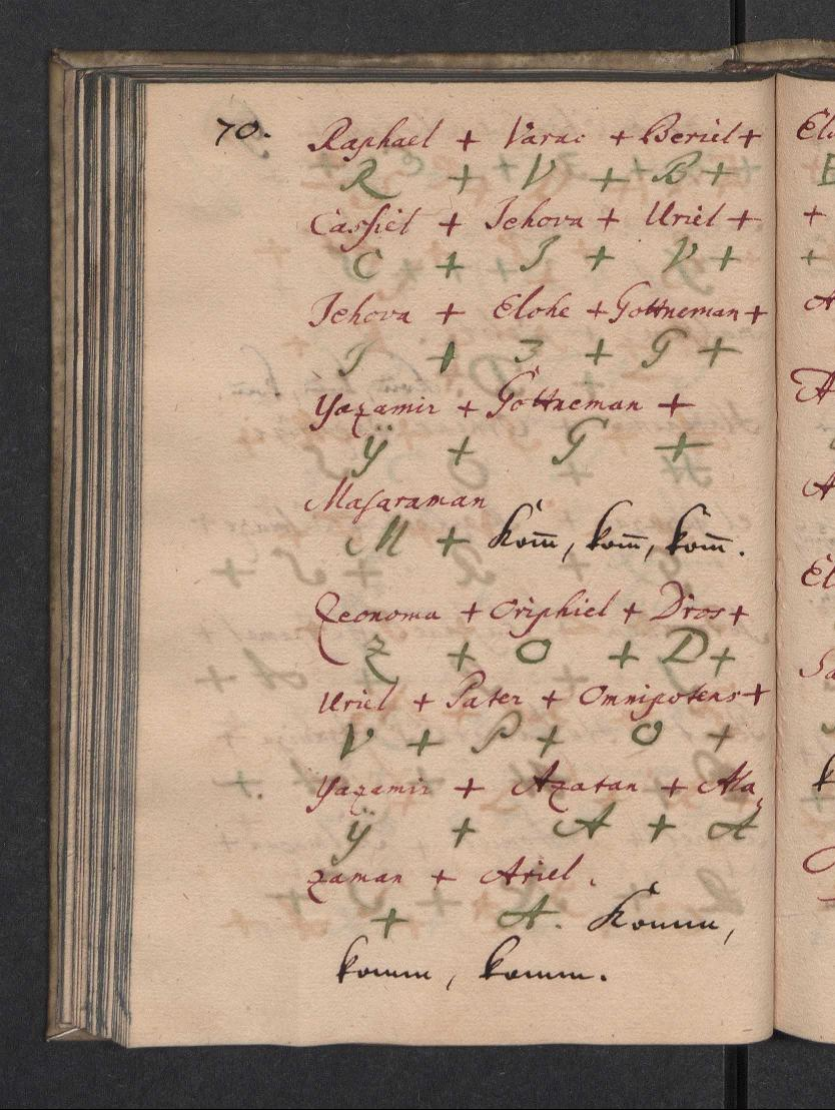 70. Raphael + Varac + Beriel +
R + V + B +
Cassiel + Jehova + Uriel +
C + J + V +
Jehova + Elohe + Gottneman +
J + 3 + G +
Yazamir + Gottneman +
ÿ + G +
Masaraman
M + Kom̄, kom̄, kom̄.
Zeonoma + Oriphiel + Dros +
Z + O + D +
Uriel + Pater + Omnipotens +
V + P + O +
Yazamir + Azatan + Ala,
ÿ + A + A
zaman + Ariel.
+ A. Komm,
komm, komm.
El
+
+
A
A
A
El
Sa